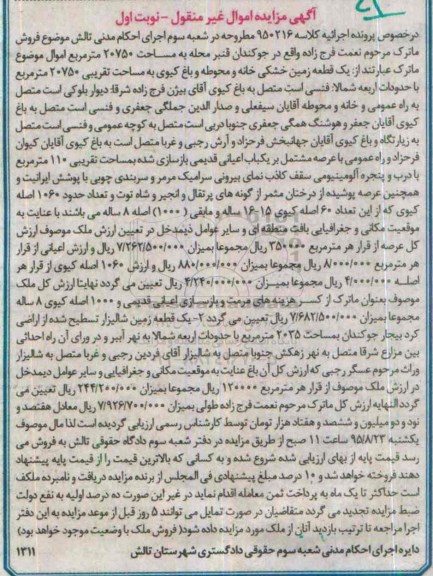 آگهی مزایده اموال غیر منقول – نوبت اول
درخصوص پرونده اجرائیه کلاسه ۹۵۰۲۱۶ مطروحه در شعبه سوم اجرای احکام مدنی تالش موضوع فروش
ماترک مرحوم نعمت فرح زاده واقع در جوکندان قنبر محله به مساحت ۲۰۷۵۰ مترمربع اموال موضوع
ماترک عبارتند از: یک قطعه زمین خشکی خانه و محوطه و باغ کیوی به مساحت تقریبی ۲۰۷۵۰ مترمربع
با حدودات اربعه شمالا: فنسی است متصل به باغ کیوی آقای بیژن فرح زاده شرقا: دیوار بلوکی است متصل
به راه عمومی و خانه و محوطه آقایان سیفعلی و صدرالدین جملگی جعفری و فنسی است متصل به باغ
کیوی آقایان جعفر و هوشنگ همگی جعفری جنوبا دربی است متصل به کوچه عمومی و فنسی است متصل
به زیارتگاه و باغ کیوی آقایان جهانبخش فرحزاد و آرش رجبی و غربا متصل است به باغ کیوی آقایان کیوان
فرحزاد و راه عمومی با عرصه مشتمل بر یکباب اعیانی قدیمی بازسازی شده بمساحت تقریبی ۱۱۰ مترمربع
با درب و پنجره آلومینیومی سقف کاذب نمای بیرونی سرامیک مرمر و سربندی چوبی با پوشش ایرانیت و
همچنین عرصه پوشیده از درختان مثمر از گونه های پرتقال و انجیر و شاه توت و تعداد حدود ۱۰۶۰ اصله
کیوی که از این تعداد ۶۰ اصله کیوی ۱۵-۱۶ ساله و مابقی (۱۰۰۰) اصله ۸ ساله می باشند با عنایت به
موقعیت مکانی و جغرافیایی بافت منطقه ای و سایر عوامل ذیمدخل در تعیین ارزش ملک موصوف ارزش
کل عرصه از قرار هر مترمربع ۳۵۰۰۰۰ ریال مجموعا بمیزان ۷/۲۶۲/۵۰۰/۰۰۰ ریال و ارزش اعیانی از قرار
هر مترمربع ۸/۰۰۰/۰۰۰ ریال مجموعا بمیزان ۸۸۰/۰۰۰/۰۰۰ ریال و ارزش ۱۰۶۰ اصله کیوی از قرار هر
اصلـه ۴/۰۰۰/۰۰۰ ریال مجموعا بمیـزان ۴/۲۴۰/۰۰۰/۰۰۰ ریال تعیین می گردد نهایتا ارزش کل ملک
موصوف بعنوان ماترک از کسـر هزینه های مرمت و بازسـازی اعیانی قدیمی و ۱۰۰۰ اصله کیوی ۸ ساله
مجموعا بمیزان ۷/۶۸۲/۵۰۰/۰۰۰ ریال تعیین می گردد ۲- یک قطعه زمین شالیزار تسطیح شده از اراضی
کرد بیجار جوکندان بمساحت ۲۰۳۵ مترمربع با حدودات اربعه شمالا به نهر آببر و در ورای آن راه احداثی
بین مزارع شرقا متصل به نهر زهکش جنوبا متصل به شالیزار آقای فردین رجبی و غربا متصل به شالیزار
وراث مرحوم عسگر رجبی که ارزش کل آن باغ عنایت به موقعیت مکانی و جغرافیایی و سایر عوامل ذیمدخل
در ارزش ملک موصوف از قرار هر مترمربع ۱۲۰۰۰۰ ریال مجموعا بمیزان ۲۴۴/۲۰۰/۰۰۰ ریال تعیین می
گردد النهایه ارزش کل ماترک مرحوم نعمت فرح زاده طولی بمیزان ۷/۹۲۶/۷۰۰/۰۰۰ ریال معادل هفتصد و
نود و دو میلیون و ششصد و هفتاد هزار تومان توسط کارشناس رسمی ارزیابی گردیده است لذا مال موصوف
یکشنبه ۹۵/۸/۲۳ ساعت ۱۱ صبح از طریق مزایده در دفتر شعبه سوم دادگاه حقوقی تالش به فروش می
رسد قیمت پایه از بهای ارزیابی شده شروع شده و به کسانی که بالاترین قیمت را از قیمت پایه پیشنهاد
دهند فروخته خواهد شد و ۱۰ درصد مبلغ پیشنهادی فی المجلس از برنده مزایده دریافت و نامبرده ملکف
است حداکثر تا یک ماه به پرداخت ثمن معامله اقدام نماید در غیر این صورت ده درصد اولیه به نفع دولت
ضبط مزایده تجدید می گردد متقاضیان در صورت تمایل می توانند ۵ روز قبل از موعد مزایده به این دفتر
اجرا مراجعه تا ترتیب بازدید آنان از ملک مورد مزایده داده شود( فروش ملک با وضعیت موجود خواهد بود)
دایره اجرای احکام مدنی شعبه سوم حقوقی دادگستری شهرستان تالش ۱۳۱۱